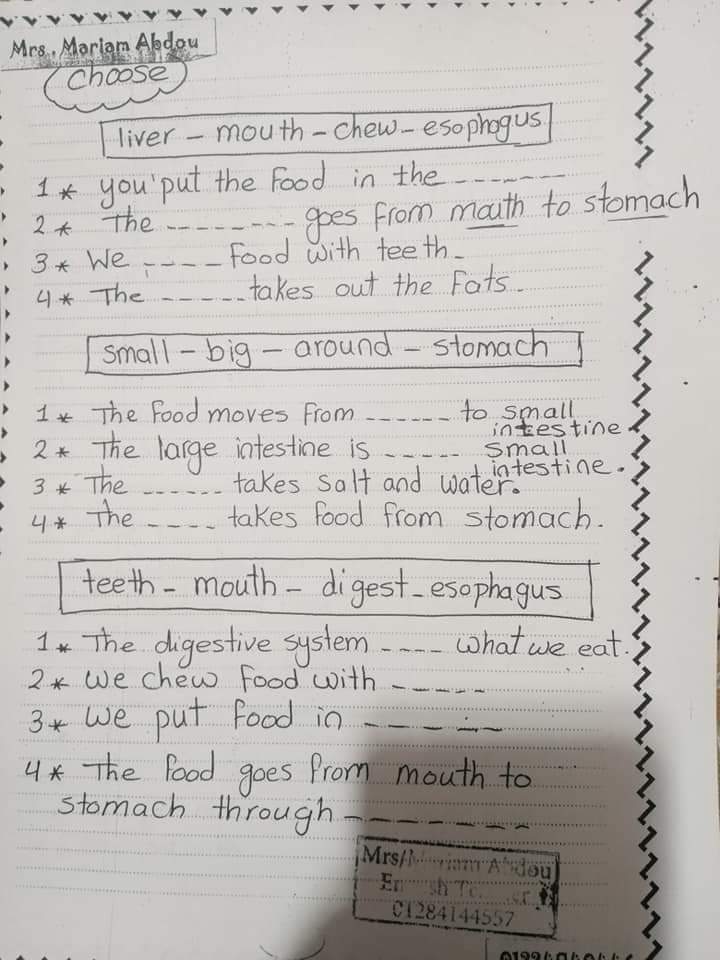 Mrs. Mariam Abdou
Choose
liver - mouth - chew - esophogus
1* you put the food in the -------
2* The -------- goes from mouth to stomach
3* We ----- food with teeth.
4* The ----- takes out the fats.
small - big - around - stomach
1* The food moves from ------ to small
intestine.
2* The large intestine is ----- small
intestine.
3* The ------ takes salt and water.
4* The ---- takes food from stomach.
teeth - mouth - digest - esophagus
1* The digestive system ---- what we eat.
2* We chew food with -----
3* We put food in -----
4* The food goes from mouth to
stomach through -------
Mrs/ Mariam Abdou
01284144557